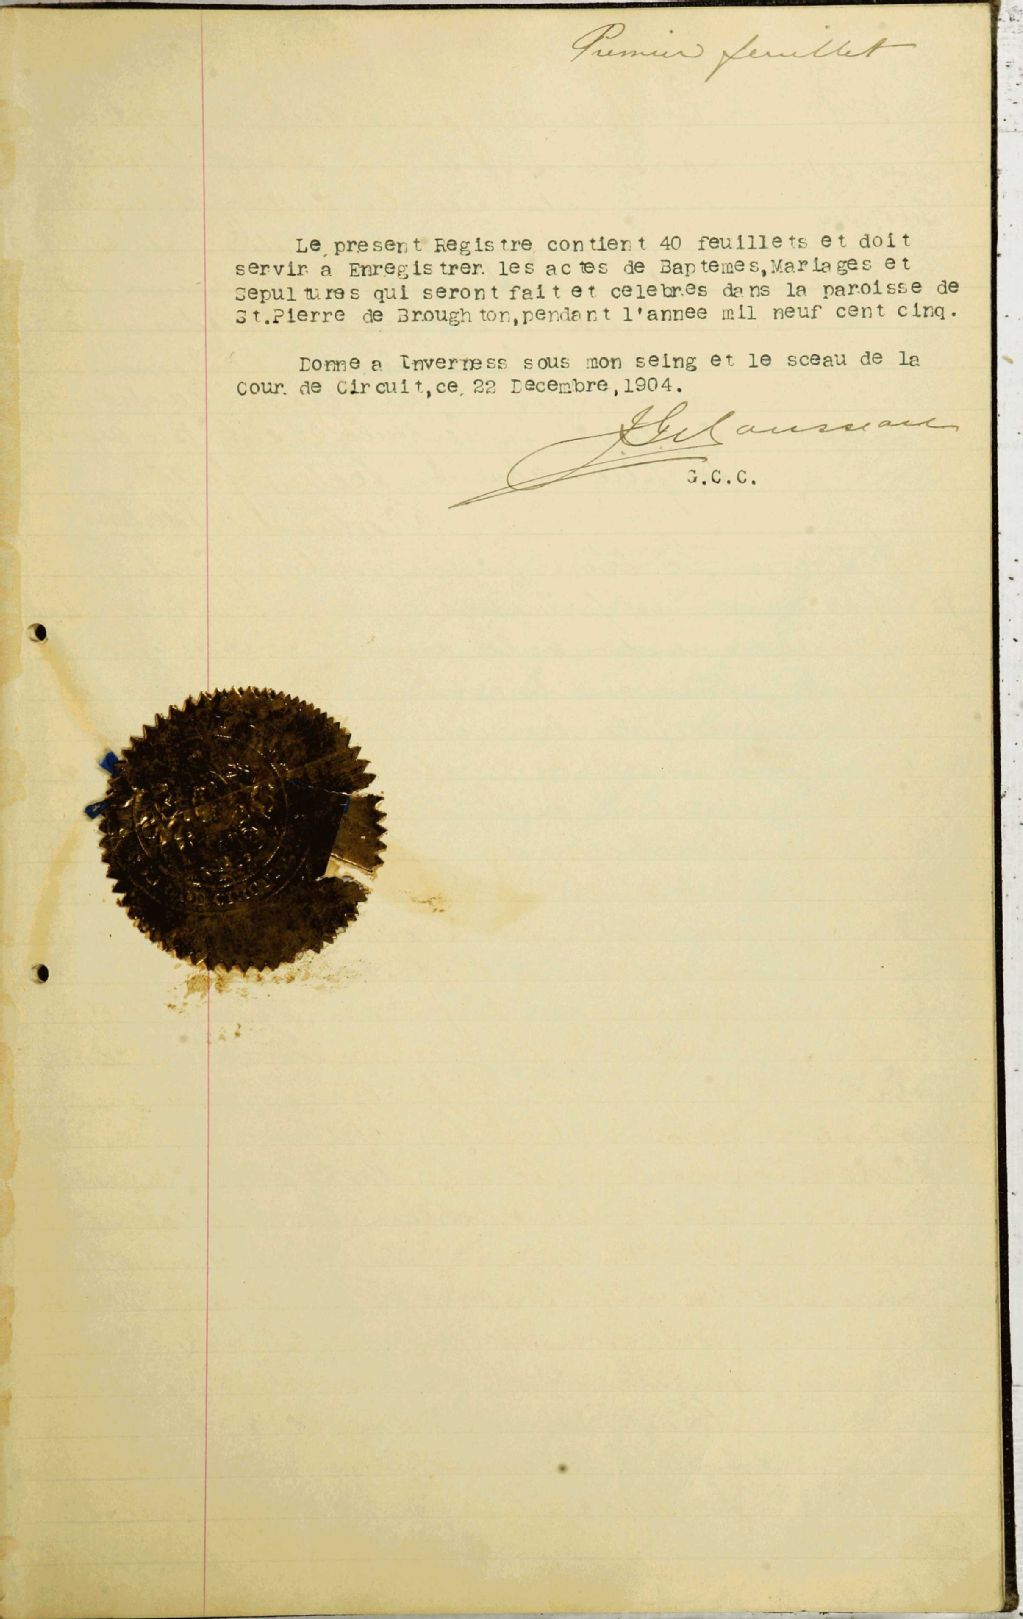 Premier feuillet
Le present Registre contient 40 feuillets et doit
servir a Enregistrer les actes de Baptemes,Mariages et
Sepultures qui seront fait et celebres dans la paroisse de
St.Pierre de Broughton,pendant l'annee mil neuf cent cinq.
Donne a Inverness sous mon seing et le sceau de la
Cour de Circuit,ce 22 Decembre,1904.
Rousseau
G.C.C.